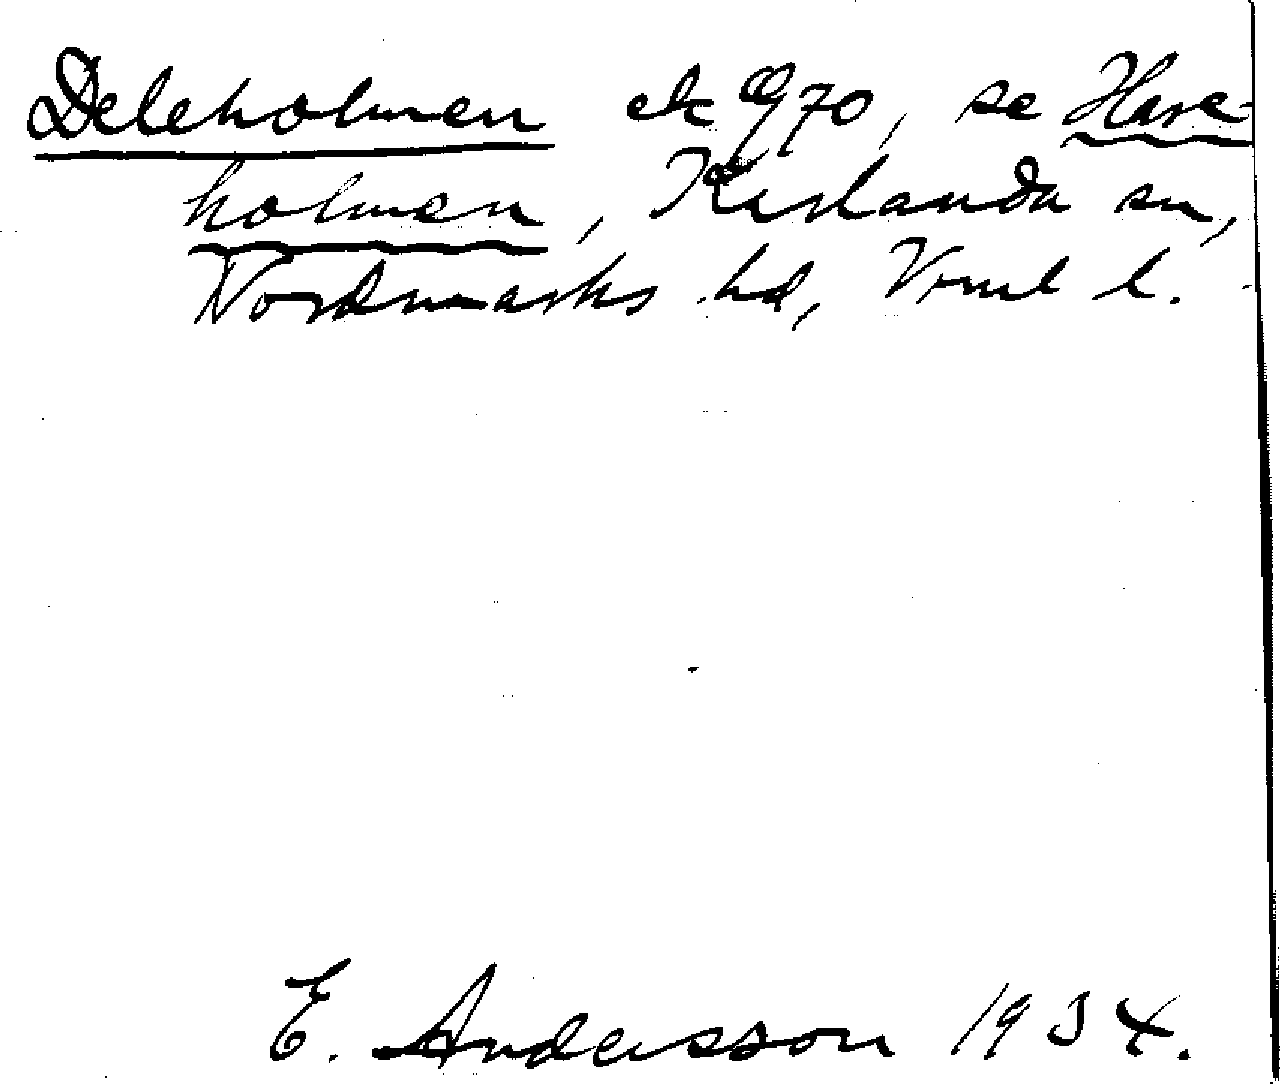 Deleholmen ek 9970, se Hare-
holmen, Karlanda sn,
Nordmarks hd, Vrml l.
E. Andersson 1934.